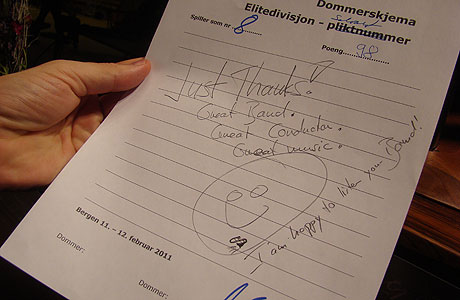 Dommerskjema
Elitedivisjon - pliktnummer
Spiller som nr 8
Poeng 98
Just Thanks!
Great Band.
Great Conductor.
Great music.
I am happy to listen your Band!!
Bergen 11. - 12. februar 2011
Dommer:
Dommer: